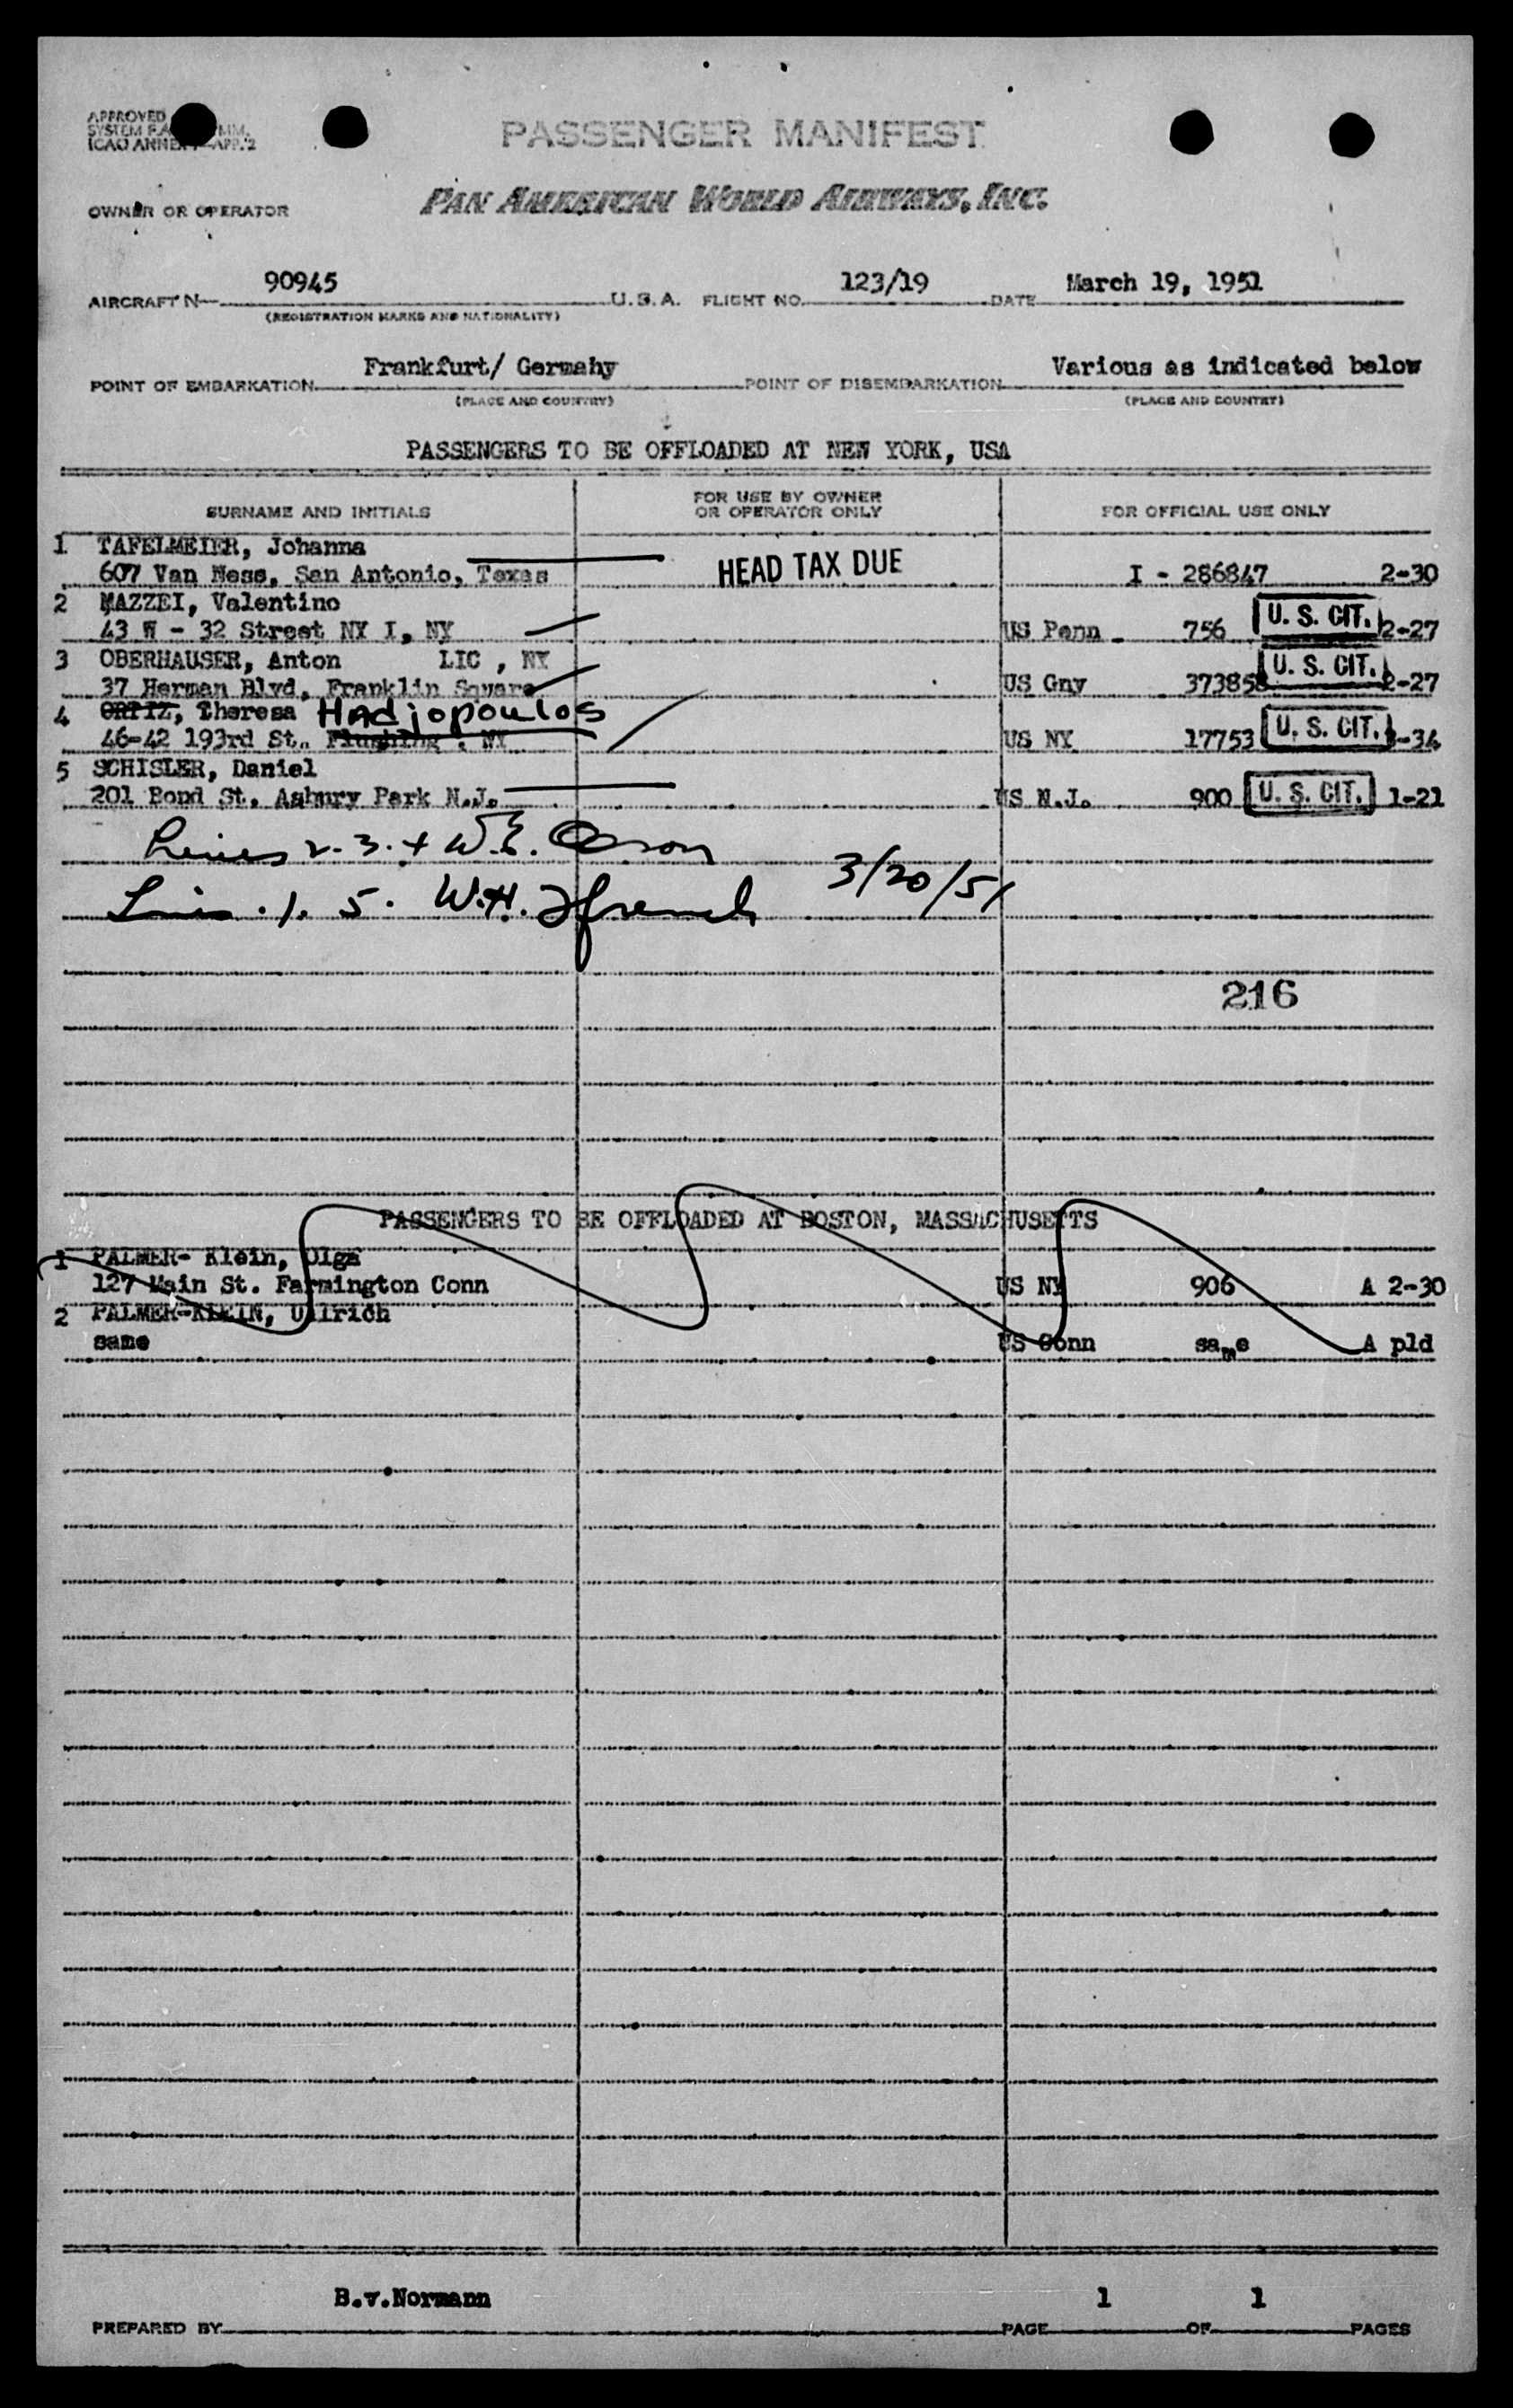 APPROVED
SYSTEM
ICAO ANNEX APP. 2
PASSENGER MANIFEST
OWNER OR OPERATOR PAN AMERICAN WORLD AIRWAYS, INC.
AIRCRAFT N 90945 U.S.A. FLIGHT NO. 123/19 DATE March 19, 1951
(REGISTRATION MARKS AND NATIONALITY)
POINT OF EMBARKATION Frankfurt/ Germahy POINT OF DISEMBARKATION Various as indicated below
(PLACE AND COUNTRY) (PLACE AND COUNTRY)
PASSENGERS TO BE OFFLOADED AT NEW YORK, USA
SURNAME AND INITIALS FOR USE BY OWNER OR OPERATOR ONLY FOR OFFICIAL USE ONLY
1 TAFELMEIER, Johanna
607 Van Ness, San Antonio, Texas HEAD TAX DUE I - 286847 2-30
2 MAZZEI, Valentino
43 W - 32 Street NY I, NY US Penn 756 U. S. CIT. 2-27
3 OBERHAUSER, Anton LIC , NY
37 Herman Blvd, Franklin Square US Gny 373858 U. S. CIT. 2-27
4 ORTIZ, Theresa Hadjopoulos
46-42 193rd St., Flushing , NY US NY 17753 U. S. CIT. -34
5 SCHISLER, Daniel
201 Bond St. Asbury Park N.J. US N.J. 900 U. S. CIT. 1-21
Lines 2. 3. 4 W. E.
Lines . 1. 5. W.H. French 3/20/51
216
PASSENGERS TO BE OFFLOADED AT BOSTON, MASSACHUSETTS
1 PALMER- Klein, Olga
127 Main St. Farmington Conn US NY 906 A 2-30
2 PALMER-KLEIN, Ullrich
same US Conn same A pld
PREPARED BY B.v.Normann PAGE 1 OF 1 PAGES